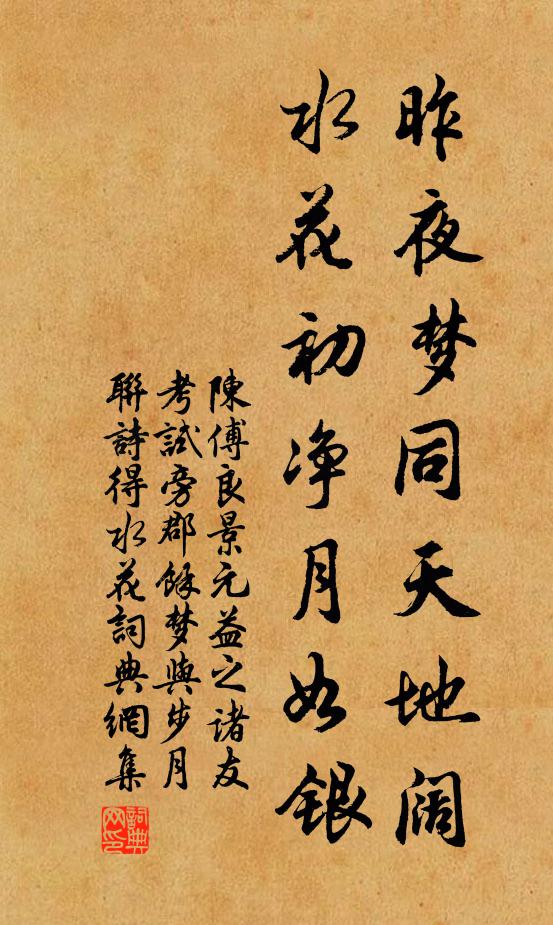 昨夜梦同天地阔
水花初净月如银
陳傅良景元益之諸友
考試旁郡餘梦與步月
聯詩得水花詞典網集
詞典网印